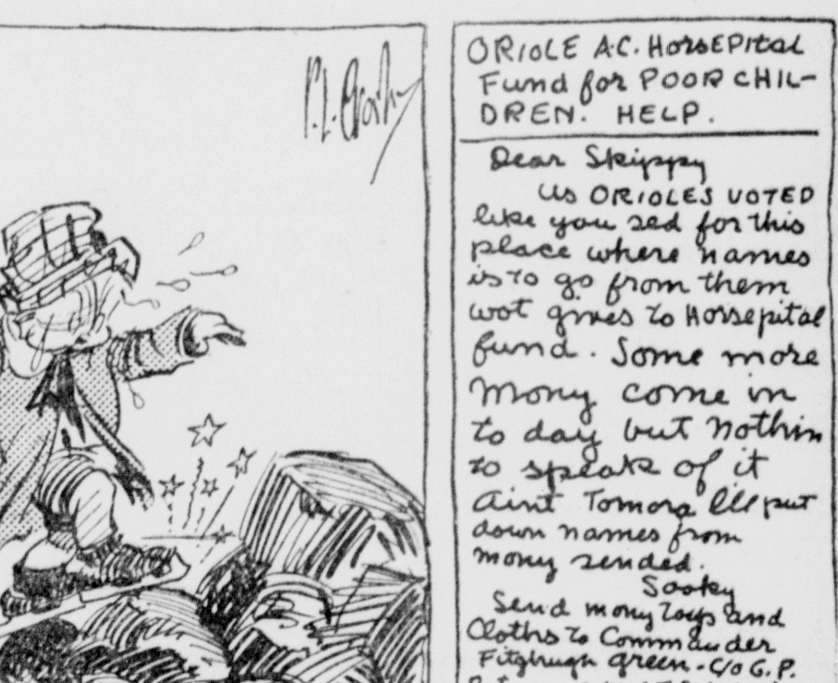 P.L. Crosby
ORIOLE A.C. HorsEPItal
Fund for POOR CHIL-
DREN. HELP.
Dear Skippy
us ORIOLES VOTED
like you sed for this
place where names
is to go from them
wot gives to Horsepital
fund. Some more
mony come in
to day but nothin
to speak of it
aint Tomora Ill put
down names from
mony sended.
Sooky
Send mony toys and
Cloths to Commander
Fitzhugh Green - C/o G.P.